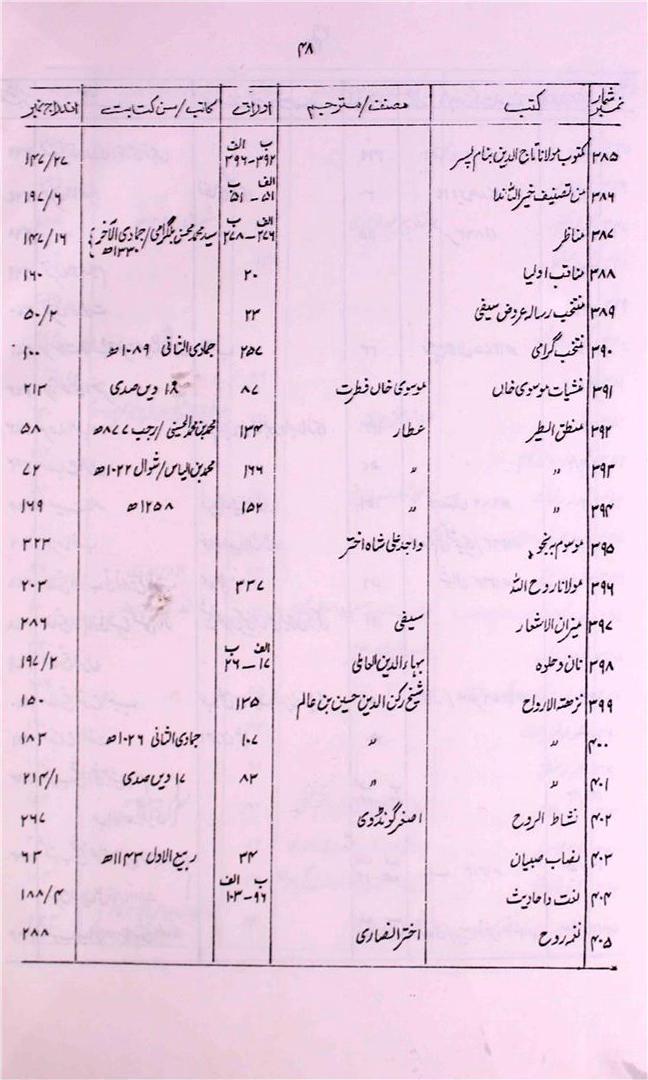 ۴۸
شمار نمبر کتب مصنف/مترجم اوراق کاتب/سن کتابت اندراج نمبر
۳۸۵ مکتوب مولانا تاج الدین بنام پسر ۳۹۲ب-۳۹۶الف ۱۴۷/۲۷
۳۸۶ من تصنیف خیر اللہ ندا ۵۱الف-۵۱ب ۱۹۷/۶
۳۸۷ مناظر ۲۷۶الف-۲۷۸ب سید محمد محسن بلگرامی/جمادی الآخر ۱۳۳۰ھ ۱۴۷/۱۶
۳۸۸ مناقب اولیا ۲۰ ۱۶۰
۳۸۹ منتخب رسالہ عروض سیفی ۲۳ ۵۰/۲
۳۹۰ منتخب گرامی ۲۵۷ جمادی الثانی ۱۰۸۹ھ ۱۰۰
۳۹۱ منشیات موسوی خاں موسوی خاں فطرت ۸۷ ۱۸ ویں صدی ۲۱۳
۳۹۲ منطق الطیر عطار ۱۳۴ محمد بن محمد الحسینی/رجب ۸۷۷ھ ۵۸
۳۹۳ " " ۱۶۶ محمد بن الیاس/شوال ۱۰۲۲ھ ۷۲
۳۹۴ " " ۱۵۲ ۱۲۵۸ھ ۱۶۹
۳۹۵ موسوم بر نجو واجد علی شاہ اختر ۳۲۳
۳۹۶ مولانا روح اللہ ۳۳۷ ۲۰۳
۳۹۷ میزان الاشعار سیفی ۲۸۶
۳۹۸ نان و حلوہ بہاء الدین العاملی ۱۷الف-۲۶ب ۱۹۷/۲
۳۹۹ نزھتہ الارواح شیخ رکن الدین حسین بن عالم ۱۳۵ ۱۵۰
۴۰۰ " " ۱۰۷ جمادی الثانی ۱۰۲۶ھ ۱۸۳
۴۰۱ " " ۸۲ ۱۷ ویں صدی ۲۱۴/۱
۴۰۲ نشاط الروح اصغر گونڈوی ۲۶۷
۴۰۳ نصاب صبیان ۳۴ ربیع الاول ۱۱۴۳ھ ۶۳
۴۰۴ نعت و احادیث ۹۶ب-۱۰۳الف ۱۸۸/۴
۴۰۵ نغمہ روح اختر انصاری ۲۸۸